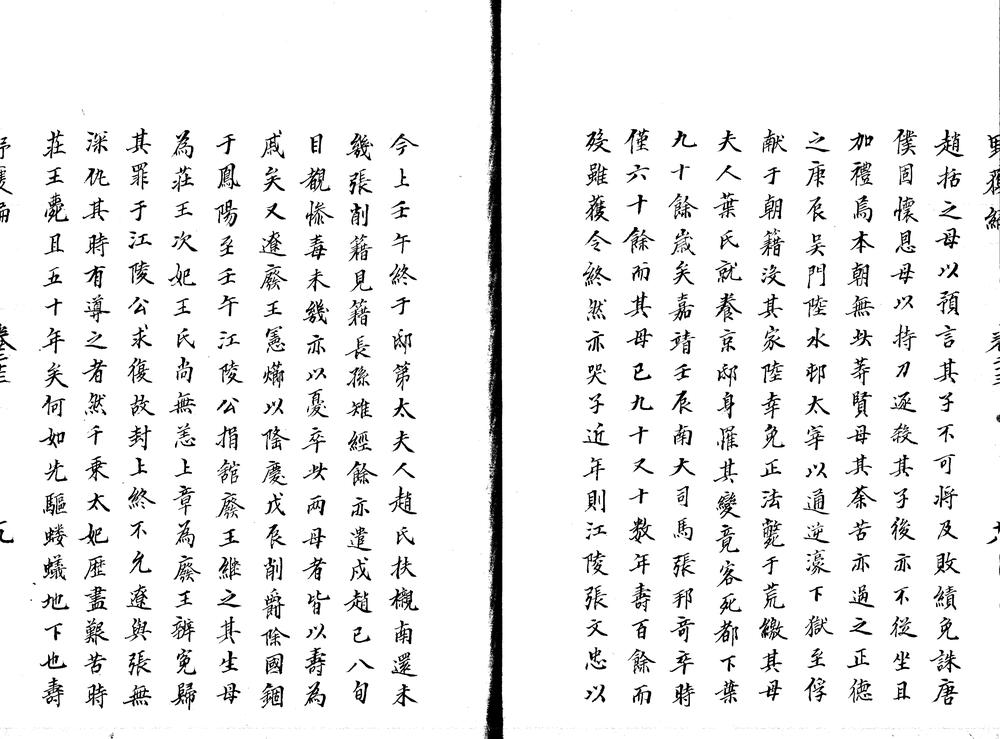 野獲編
趙括之母以預言其子不可將及敗績免誅唐
僕固懷恩母以持刀逐殺其子後亦不從坐且
加禮焉本朝無此莽賢母其荼苦亦過之正德
之庚辰吳門陸水邨太宰以通逆濠下獄至俘
献于朝籍沒其家陸幸免正法斃于荒徼其母
夫人葉氏就養京邸身罹其變竟客死都下葉
九十餘歲矣嘉靖壬辰南大司馬張邦奇卒時
僅六十餘而其母已九十又十数年壽百餘而
歿雖獲令終然亦哭子近年則江陵張文忠以
今上壬午終于邸第太夫人趙氏扶櫬南還未
幾張削籍見籍長孫雉經餘亦遣戍趙已八旬
目覩慘毒未幾亦以憂卒此兩母者皆以壽為
戚矣又遼廢王憲㸅以隆慶戊辰削爵除國錮
于鳳陽至壬午江陵公捐舘廢王継之其生母
為莊王次妃王氏尚無恙上章為廢王辨寃歸
其罪于江陵公求復故封上終不允遼與張無
深仇其時有導之者然千乘太妃歴盡艱苦時
莊王薨且五十年矣何如先驅螻蟻地下也壽
野獲編 卷二十三 九